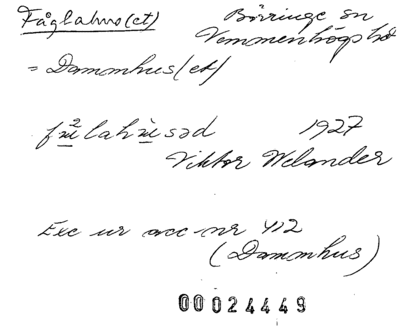 Fåglahus(et) Börringe sn
Vemmenhögs hd
= Dammhus(et)
lahùsəd 1927
Viktor Welander
Exc ur acc nr 412
(Dammhus)
00024449